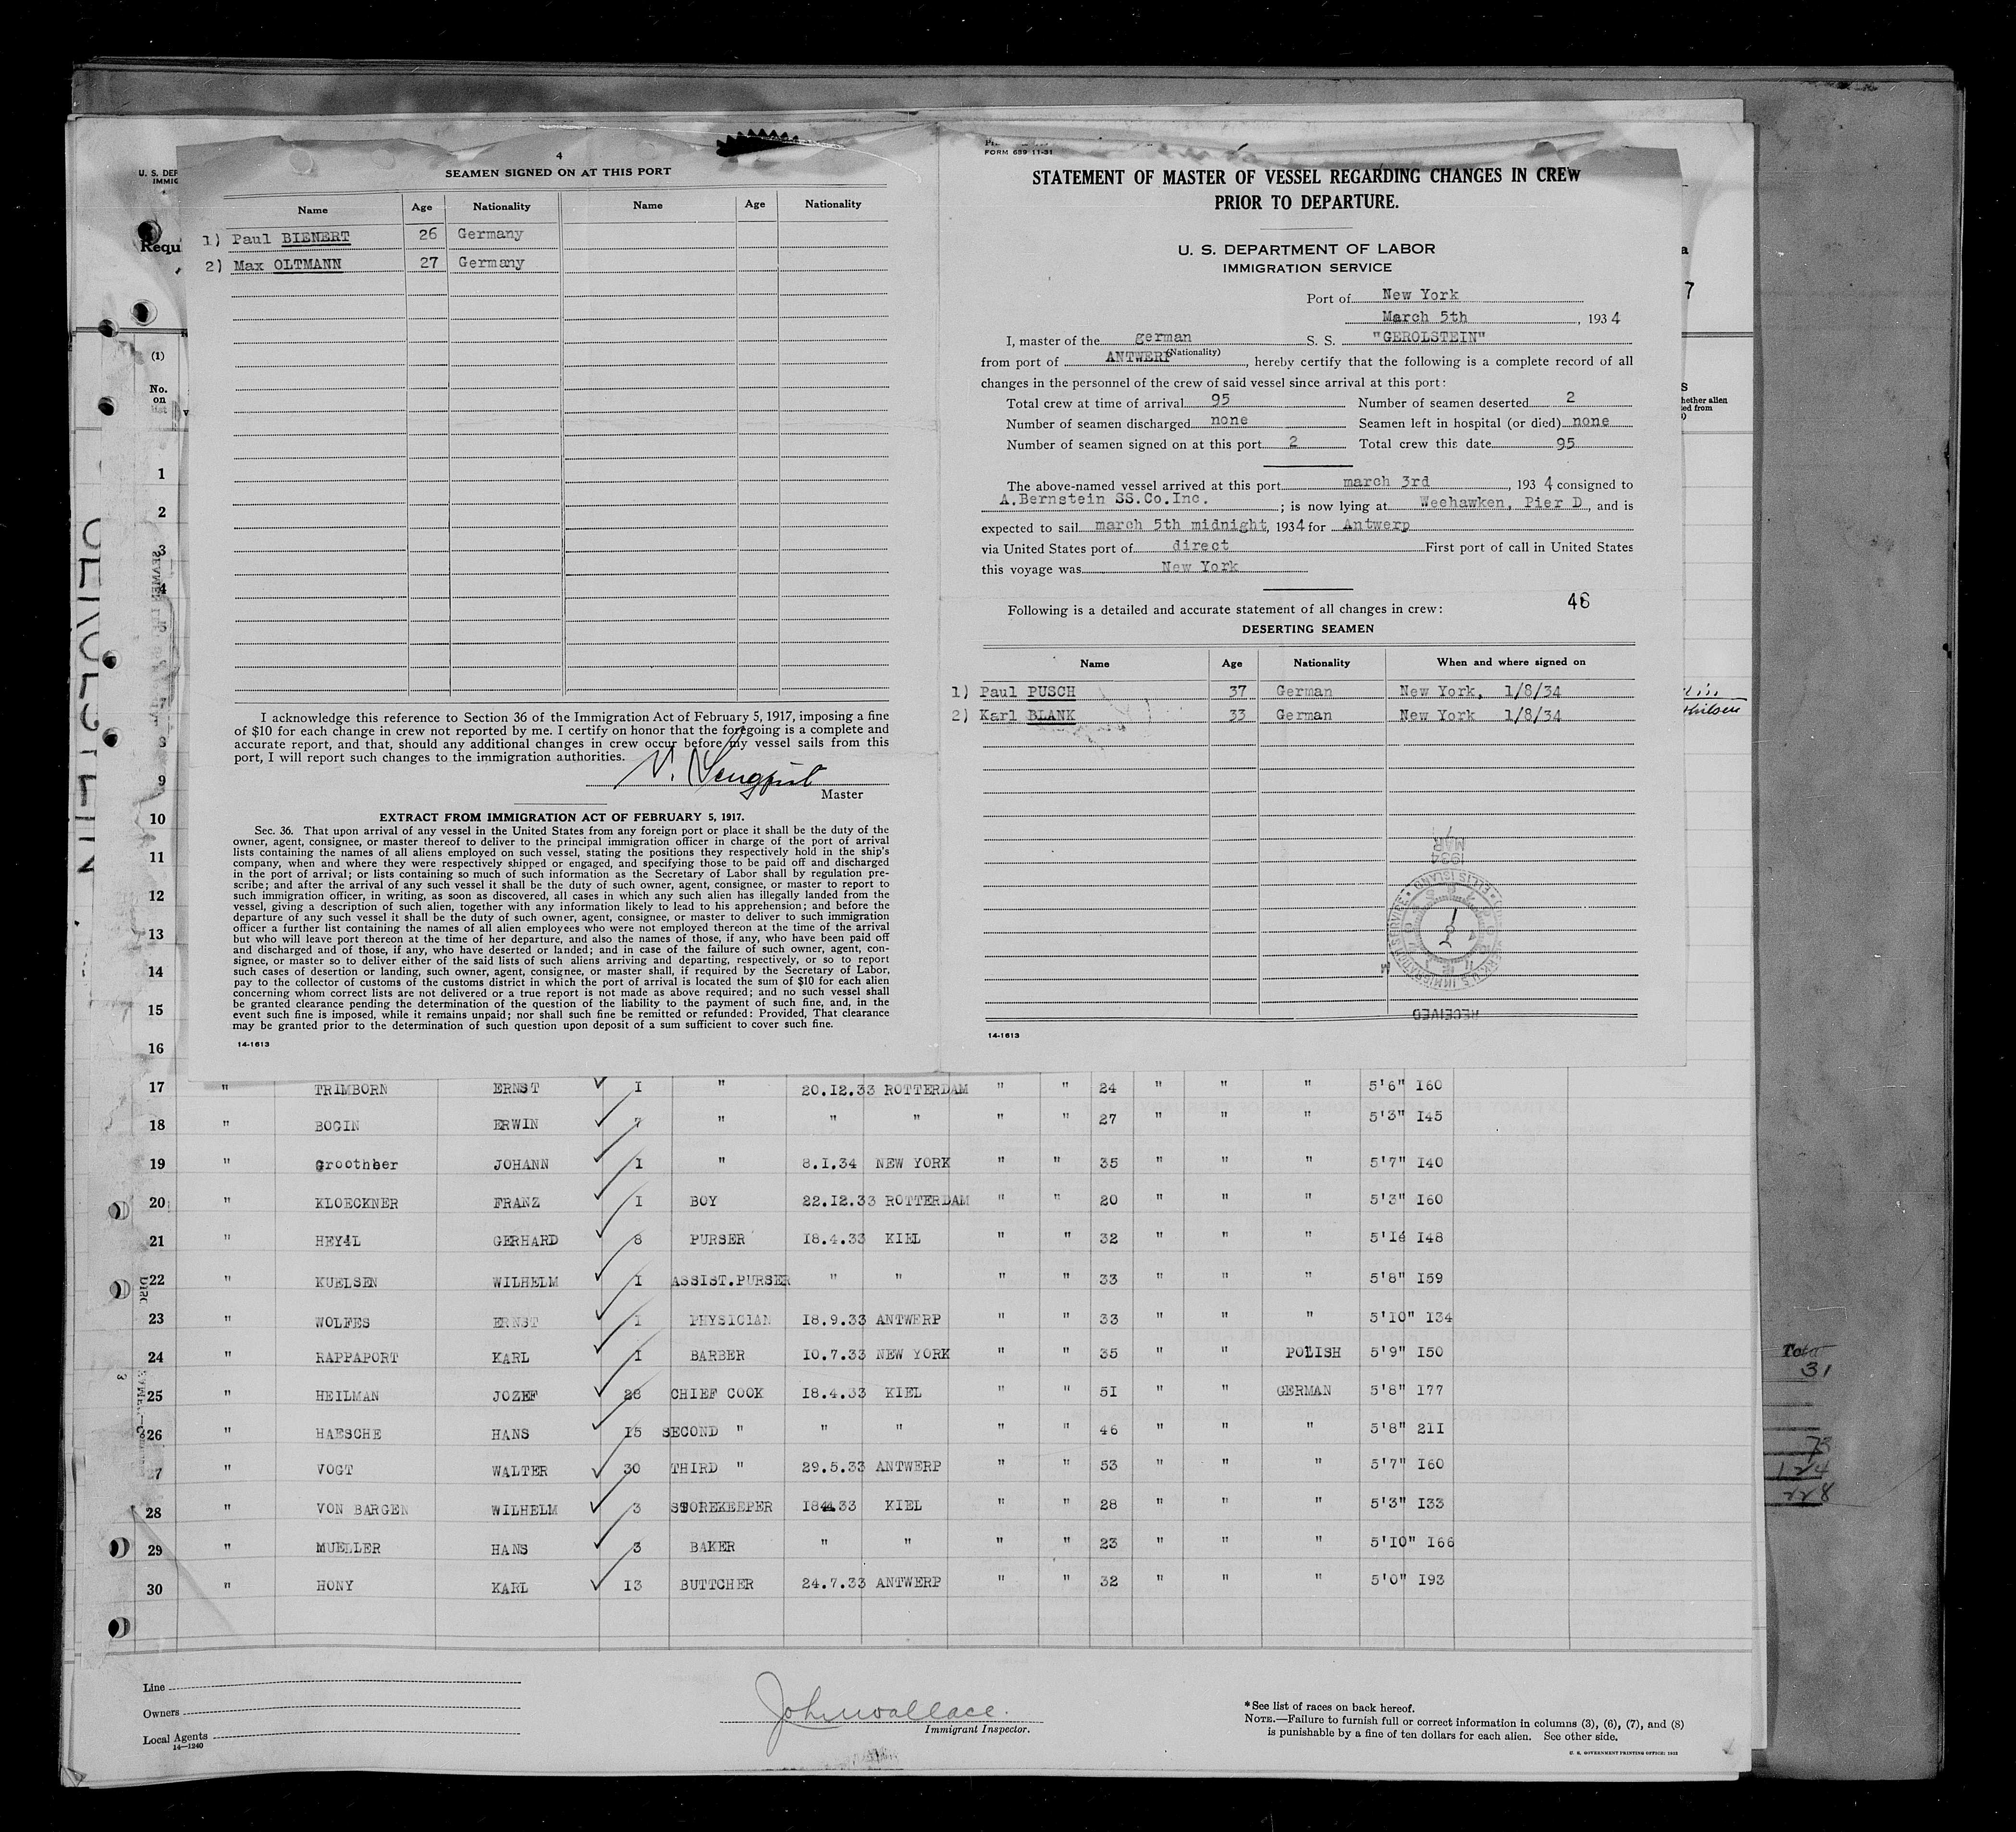 4
SEAMEN SIGNED ON AT THIS PORT
Name Age Nationality Name Age Nationality
1) Paul BIENERT 26 Germany
2) Max OLTMANN 27 Germany
I acknowledge this reference to Section 36 of the Immigration Act of February 5, 1917, imposing a fine
of $10 for each change in crew not reported by me. I certify on honor that the foregoing is a complete and
accurate report, and that, should any additional changes in crew occur before my vessel sails from this
port, I will report such changes to the immigration authorities.
Master
EXTRACT FROM IMMIGRATION ACT OF FEBRUARY 5, 1917.
Sec. 36. That upon arrival of any vessel in the United States from any foreign port or place it shall be the duty of the
owner, agent, consignee, or master thereof to deliver to the principal immigration officer in charge of the port of arrival
lists containing the names of all aliens employed on such vessel, stating the positions they respectively hold in the ship's
company, when and where they were respectively shipped or engaged, and specifying those to be paid off and discharged
in the port of arrival; or lists containing so much of such information as the Secretary of Labor shall by regulation pre-
scribe; and after the arrival of any such vessel it shall be the duty of such owner, agent, consignee, or master to report to
such immigration officer, in writing, as soon as discovered, all cases in which any such alien has illegally landed from the
vessel, giving a description of such alien, together with any information likely to lead to his apprehension; and before the
departure of any such vessel it shall be the duty of such owner, agent, consignee, or master to deliver to such immigration
officer a further list containing the names of all alien employees who were not employed thereon at the time of the arrival
but who will leave port thereon at the time of her departure, and also the names of those, if any, who have been paid off
and discharged and of those, if any, who have deserted or landed; and in case of the failure of such owner, agent, con-
signee, or master so to deliver either of the said lists of such aliens arriving and departing, respectively, or so to report
such cases of desertion or landing, such owner, agent, consignee, or master shall, if required by the Secretary of Labor,
pay to the collector of customs of the customs district in which the port of arrival is located the sum of $10 for each alien
concerning whom correct lists are not delivered or a true report is not made as above required; and no such vessel shall
be granted clearance pending the determination of the question of the liability to the payment of such fine, and, in the
event such fine is imposed, while it remains unpaid; nor shall such fine be remitted or refunded: Provided, That clearance
may be granted prior to the determination of such question upon deposit of a sum sufficient to cover such fine.
14-1613
FORM 689 11-31
STATEMENT OF MASTER OF VESSEL REGARDING CHANGES IN CREW
PRIOR TO DEPARTURE.
U. S. DEPARTMENT OF LABOR
IMMIGRATION SERVICE
Port of New York
March 5th, 1934
I, master of the german S. S. "GEROLSTEIN"
(Nationality)
from port of ANTWERP, hereby certify that the following is a complete record of all
changes in the personnel of the crew of said vessel since arrival at this port:
Total crew at time of arrival 95 Number of seamen deserted 2
Number of seamen discharged none Seamen left in hospital (or died) none
Number of seamen signed on at this port 2 Total crew this date 95
The above-named vessel arrived at this port march 3rd, 1934 consigned to
A.Bernstein SS.Co.Inc. ; is now lying at Weehawken, Pier D, and is
expected to sail march 5th midnight, 1934 for Antwerp
via United States port of direct First port of call in United States
this voyage was New York
46
Following is a detailed and accurate statement of all changes in crew:
DESERTING SEAMEN
Name Age Nationality When and where signed on
1) Paul PUSCH 37 German New York, 1/8/34
2) Karl BLANK 33 German New York 1/8/34
MAR
1934
ELLIS ISLAND
RECEIVED
14-1613
U. S. DEP
IMMIG
Requ
(1)
No.
on
list
hether alien
ed from
7
GEROLSTEIN
1
2
3
4
5
7
8
9
10
11
12
13
14
15
16
17 " TRIMBORN ERNST 1 " 20.12.33 ROTTERDAM " " 24 " " " 5'6" 160
18 " BOGIN ERWIN 7 " " " " " 27 " " " 5'3" 145
19 " Groothher JOHANN 1 " 8.1.34 NEW YORK " " 35 " " " 5'7" 140
20 " KLOECKNER FRANZ 1 BOY 22.12.33 ROTTERDAM " " 20 " " " 5'3" 160
21 " GERHARD 8 PURSER 18.4.33 KIEL " " 32 " " " 148
22 " KUELSEN WILHELM 1 ASSIST.PURSER " " " " 33 " " " 5'8" 159
23 " WOLFES ERNST 1 PHYSICIAN 18.9.33 ANTWERP " " 33 " " " 5'10" 134
24 " RAPPAPORT KARL 1 BARBER 10.7.33 NEW YORK " " 35 " " POLISH 5'9" 150
25 " HEILMAN JOZEF 28 CHIEF COOK 18.4.33 KIEL " " 51 " " GERMAN 5'8" 177
26 " HAESCHE HANS 15 SECOND " " " " " 46 " " " 5'8" 211
27 " VOGT WALTER 30 THIRD " 29.5.33 ANTWERP " " 53 " " " 5'7" 160
28 " VON BARGEN WILHELM 3 STOREKEEPER 18.4.33 KIEL " " 28 " " " 5'3" 133
29 " MUELLER HANS 3 BAKER " " " " 23 " " " 5'10" 166
30 " HONY KARL 13 BUTTCHER 24.7.33 ANTWERP " " 32 " " " 5'0" 193
Total
31
75
124
228
Line
Owners
Local Agents
14-1240
John Wallace
Immigrant Inspector.
*See list of races on back hereof.
NOTE.—Failure to furnish full or correct information in columns (3), (6), (7), and (8)
is punishable by a fine of ten dollars for each alien. See other side.
U. S. GOVERNMENT PRINTING OFFICE: 1932